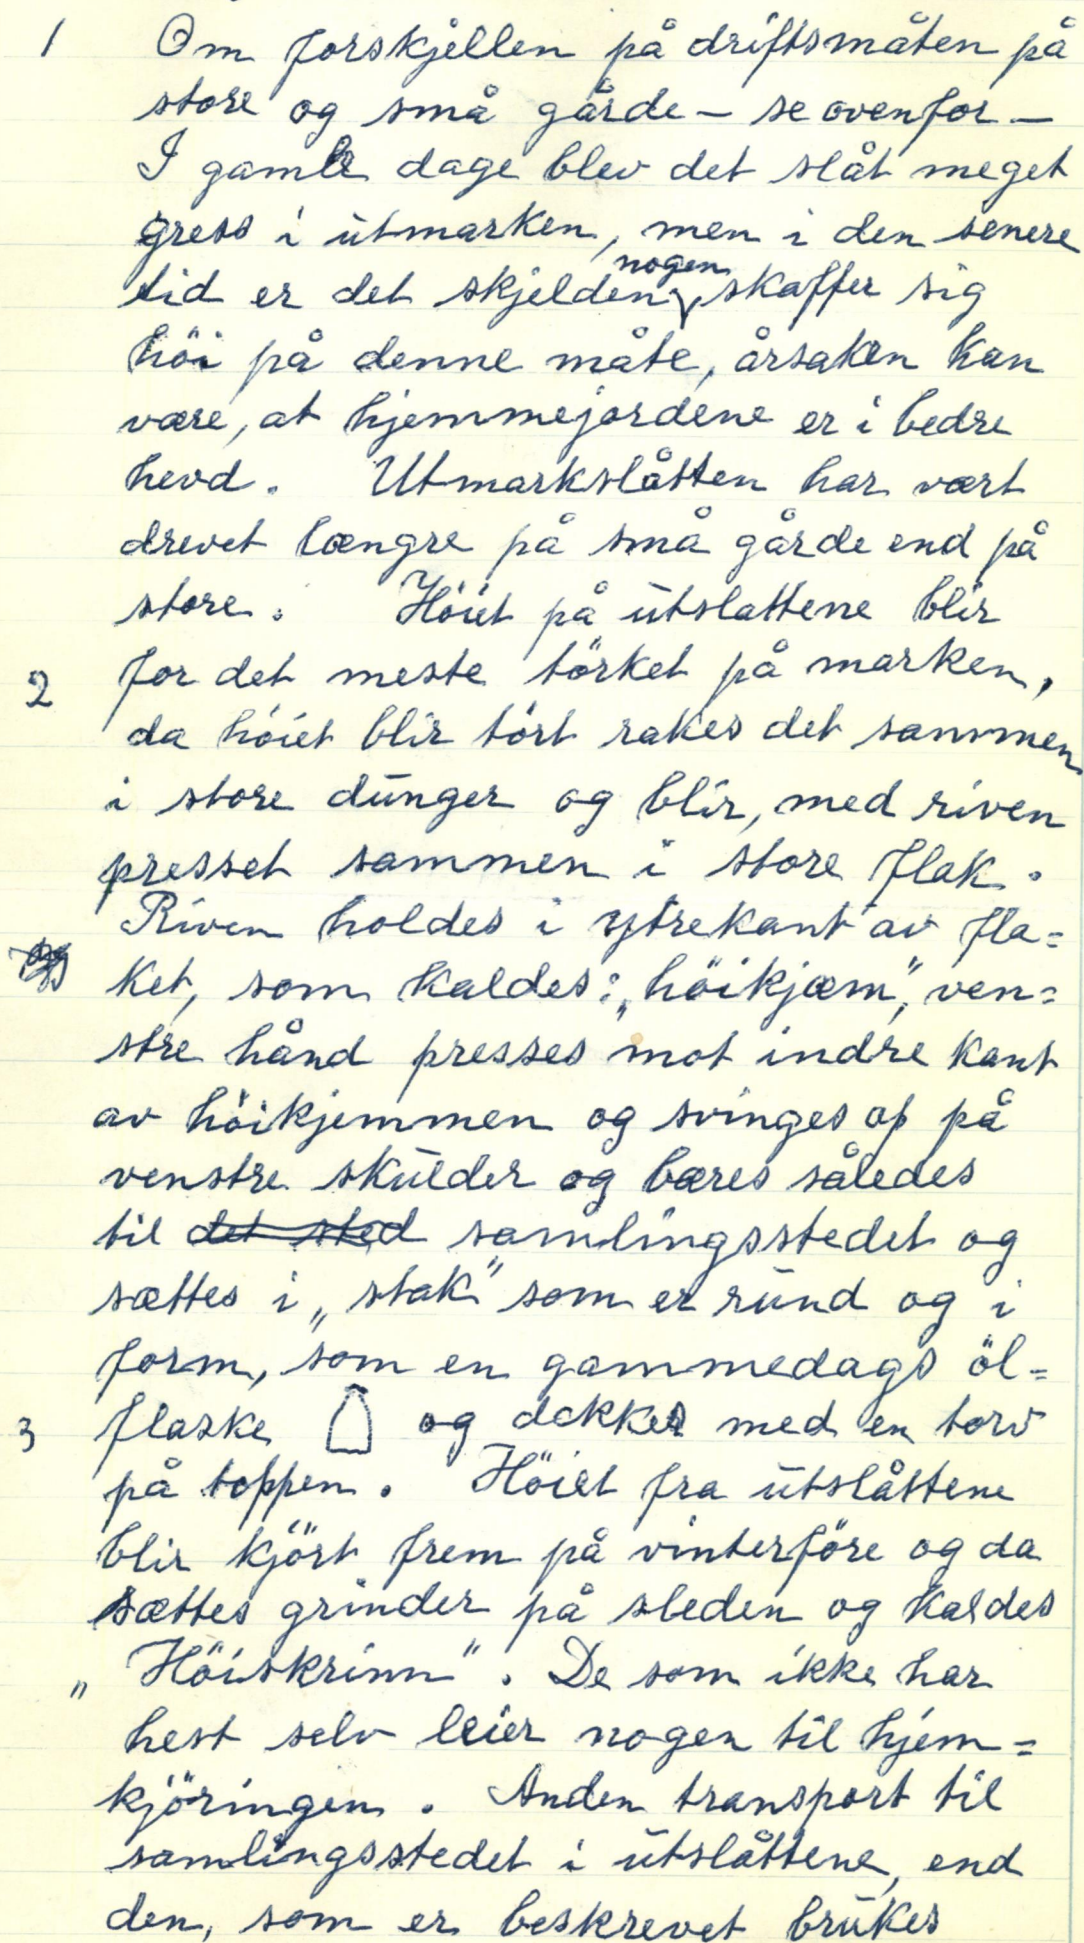 1 Om forskjellen på driftsmåten på
store og små gårde – se ovenfor –
I gamle dage blev det slåt meget
gress i utmarken, men i den senere
tid er det skjelden nogen skaffer sig
höi på denne måte, årsaken kan
være, at hjemmejordene er i bedre
hevd. Utmarkslåtten har vært
drevet længre på små gårde end på
store. Höiet på utslattene blir
2 for det meste törket på marken,
da höiet blir tört rakes det sammen
i store dunger og blir, med riven
presset sammen i store flak.
Riven holdes i ytrekant av fla=
ket, som kaldes: „höikjæm", ven=
stre hånd presses mot indre kant
av höikjemmen og svinges op på
venstre skulder og bæres således
til det sted samlingsstedet og
sættes i „stak" som er rund og i
form, som en gammedags öl=
3 flaske og dekket med en torv
på toppen. Höiet fra utslåttene
blir kjört frem på vinterföre og da
sættes grinder på sleden og kaldes
„Höiskrinn". De som ikke har
hest selv leier nogen til hjem=
kjöringen. Anden transport til
samlingsstedet i utslåttene, end
den, som er beskrevet brukes